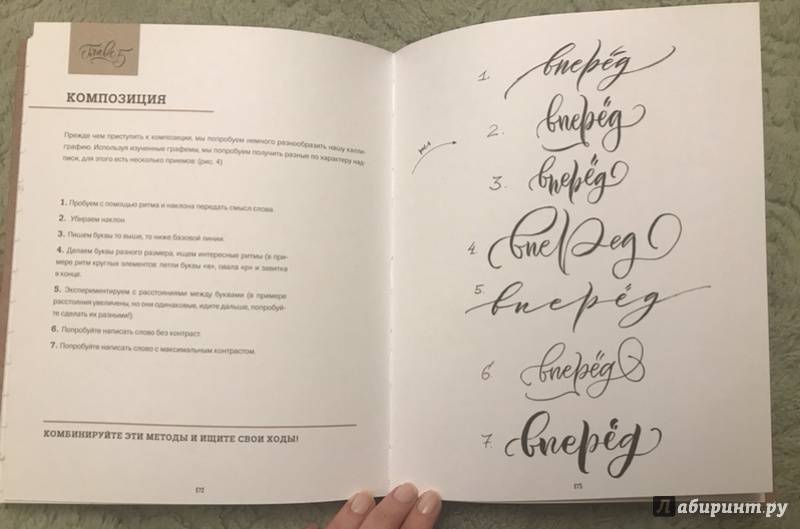 Глава 5
КОМПОЗИЦИЯ
Прежде чем приступить к композиции, мы попробуем немного разнообразить нашу калли-
графию. Используя изученные графемы, мы попробуем получить разные по характеру над-
писи, для этого есть несколько приемов: (рис. 4)
1. Пробуем с помощью ритма и наклона передать смысл слова.
2. Убираем наклон.
3. Пишем буквы то выше, то ниже базовой линии.
4. Делаем буквы разного размера, ищем интересные ритмы (в при-
мере ритм круглых элементов: петли буквы «в», овала «р» и завитка
в конце.
5. Экспериментируем с расстояниями между буквами (в примере
расстояния увеличены, но они одинаковые, идите дальше, попробуй-
те сделать их разными!).
6. Попробуйте написать слово без контраст.
7. Попробуйте написать слово с максимальным контрастом.
КОМБИНИРУЙТЕ ЭТИ МЕТОДЫ И ИЩИТЕ СВОИ ХОДЫ!
172
1. вперёд
2. вперёд
3. вперёд
4 вперед
5. вперёд
6 вперёд
7. вперёд
173
Лабиринт.ру